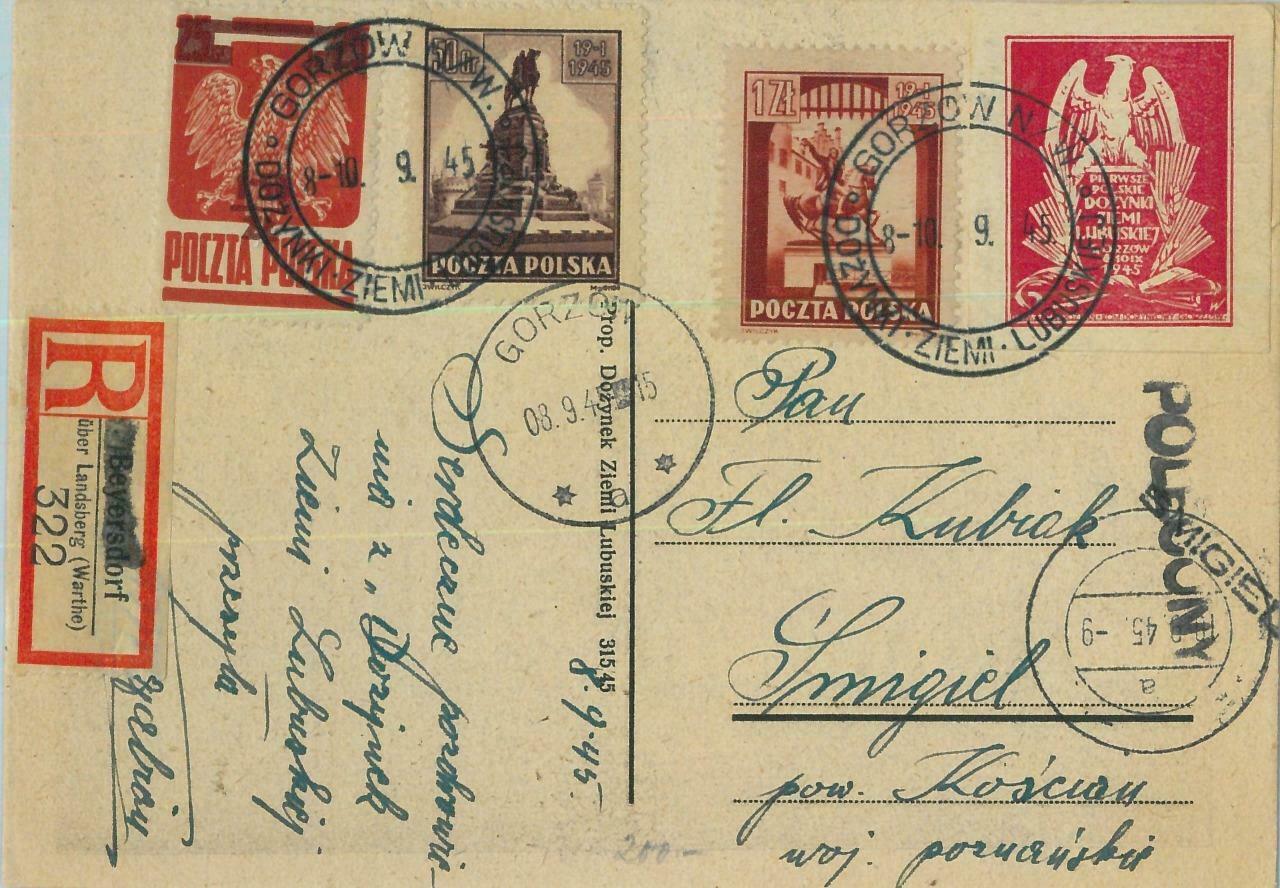 25
POCZTA POLSKA
50 Gr
19-I
1945
POCZTA POLSKA
GORZÓW N/W.
8-10. 9. 45.
DOŻYNKI ZIEMI LUBUSKIEJ
1 ZŁ
19-I
1945
POCZTA POLSKA
GORZÓW N/W.
8-10. 9. 45.
DOŻYNKI · ZIEMI · LUBUSKIEJ
PIERWSZE
POLSKIE
DOŻYNKI
ZIEMI
LUBUSKIEJ
GORZÓW
1945
R
Beyersdorf
über Landsberg (Warthe)
322
GORZÓW
08. 9. 45 15
a
Prop. Dożynek Ziemi Lubuskiej 315,45
8.9.45
Serdeczne pozdrowie
nia z „Dożynek
Ziemi Lubuskiej
przesyła
Pan
Fl. Kubiak
Śmigiel
pow. Kościan
woj. poznańskie
POLECONY
ŚMIGIEL
45.-9
a
200-